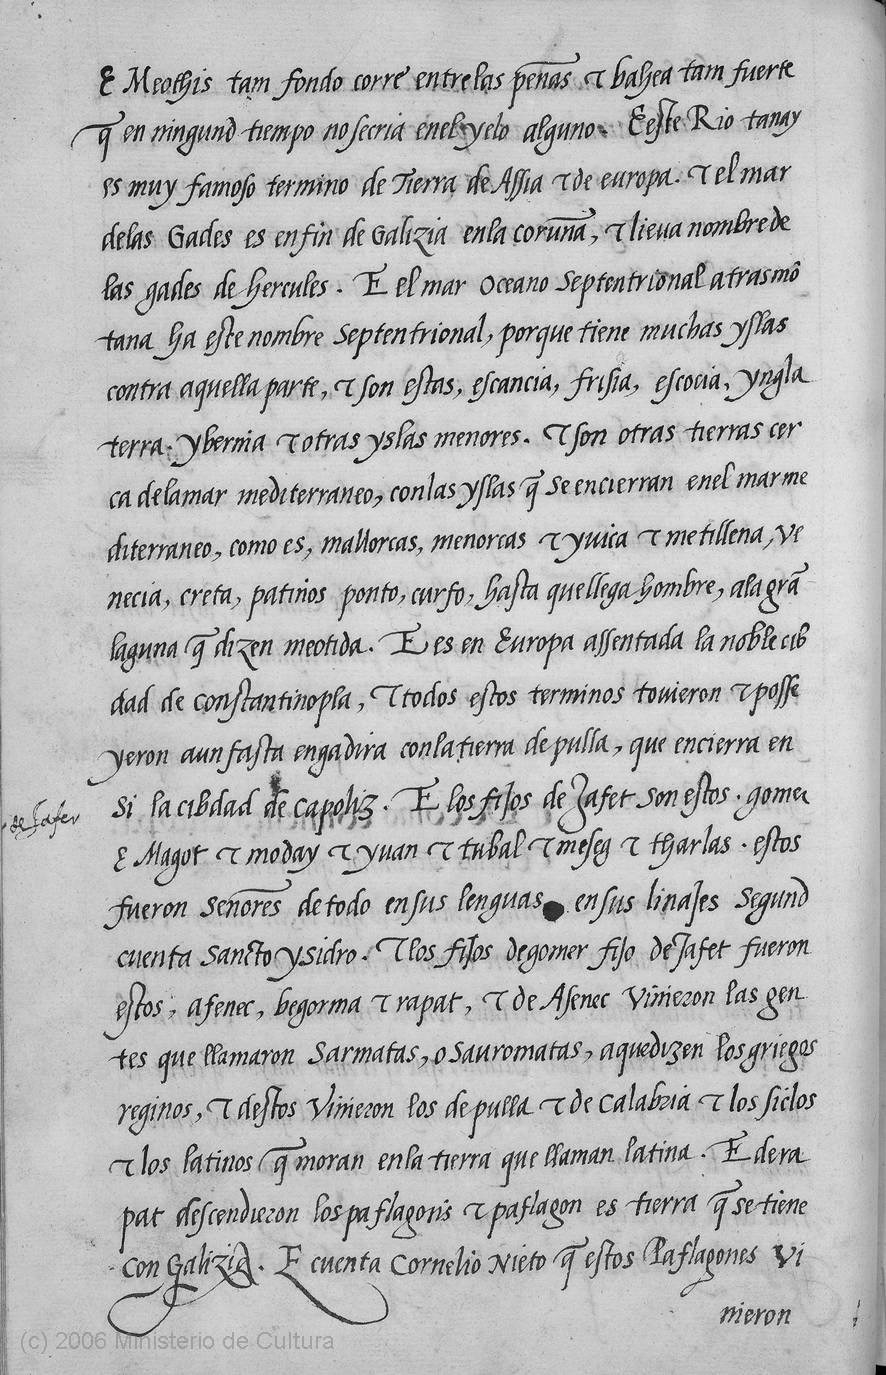 E Meothis tam fondo corre entre las peñas τ bahea tam fuerte
q̃ en ningund tiempo no se cria en el yelo alguno. E este Rio tanay
es muy famoso termino de Tierra de Assia τ de europa. τ el mar
delas Gades es en fin de Galizia en la coruña, τ lieua nombre de
las gades de hercules. E el mar Oceano Septentrional atrasmõ
tana ha este nombre Septentrional, porque tiene muchas yslas
contra aquella parte, τ son estas, escancia, frisia, escocia, yngla
terra. ybernia τ otras yslas menores. τ son otras tierras cer
ca dela mar mediterraneo, con las yslas q̃ se encierran enel mar me
diterraneo, como es, mallorcas, menorcas τ yuica τ metillena, ve
necia, creta, patinos ponto, curfo, hasta que llega hombre, ala grã
laguna q̃ dizen meotida. E es en Europa assentada la noble cib
dad de constantinopla, τ todos estos terminos touieron τ posse
yeron aun fasta engadira con la tierra de pulla, que encierra en
si la cibdad de capoliz. E los fijos de Jafet son estos. gomer
de Jafer
E Magot τ moday τ yuan τ tubal τ meseg τ tharlas. estos
fueron señores de todo en sus lenguas en sus linajes segund
cuenta Sancto ysidro. τ los fijos de gomer fijo de Jafet fueron
estos, afenec, begorma τ rapat, τ de Asenec vinieron las gen
tes que llamaron Sarmatas, o Sauromatas, a que dizen los griegos
reginos, τ destos vinieron los de pulla τ de Calabria τ los siclos
τ los latinos q̃ moran en la tierra que llaman latina. E de ra
pat descendieron los paflagonis τ paflagon es tierra q̃ se tiene
con Galizia. E cuenta Cornelio Nieto q̃ estos Paflagones vi
nieron
(c) 2006 Ministerio de Cultura